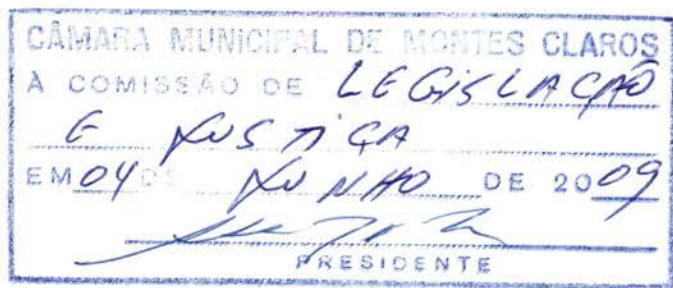 CÂMARA MUNICIPAL DE MONTES CLAROS
À COMISSÃO DE LEGISLAÇÃO
E JUSTIÇA
EM 04 DE JUNHO DE 2009
PRESIDENTE